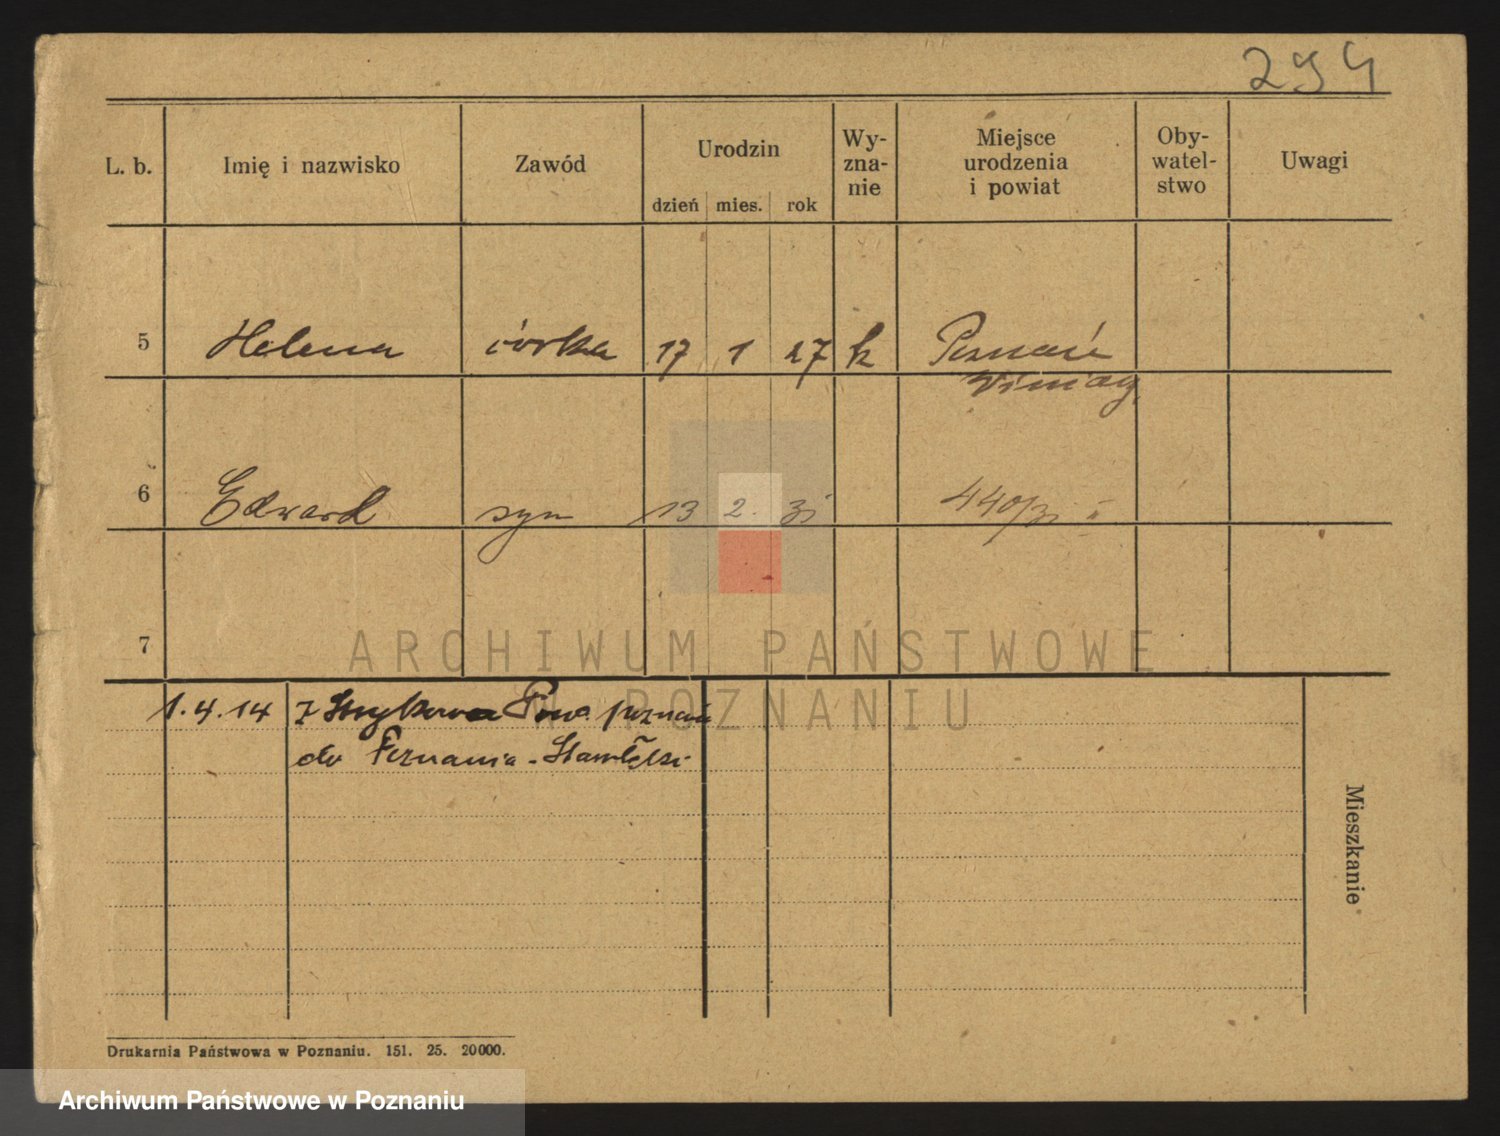 294
L. b. Imię i nazwisko Zawód Urodzin dzień mies. rok Wy- zna- nie Miejsce urodzenia i powiat Oby- watel- stwo Uwagi
5 Helena córka 17 1 27 k Poznań
Winiary
6 Edward syn 13 2. 31 440/31 "
7
ARCHIWUM PAŃSTWOWE
W POZNANIU
1.4.14 Z Strykowa Pow. poznań
do Poznania -
Mieszkanie
Drukarnia Państwowa w Poznaniu. 151. 25. 20000.
Archiwum Państwowe w Poznaniu